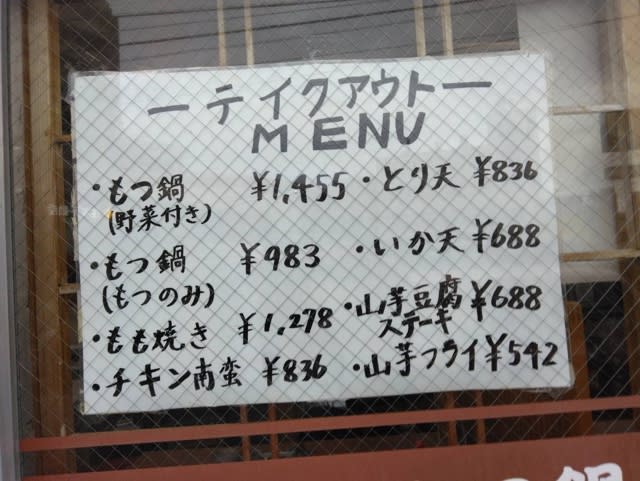 ーテイクアウトー
MENU
・もつ鍋 ¥1,455
(野菜付き)
・もつ鍋 ¥983
(もつのみ)
・もも焼き ¥1,278
・チキン南蛮 ¥836
・とり天 ¥836
・いか天 ¥688
・山芋豆腐 ¥688
ステーキ
・山芋フライ ¥542
鍋